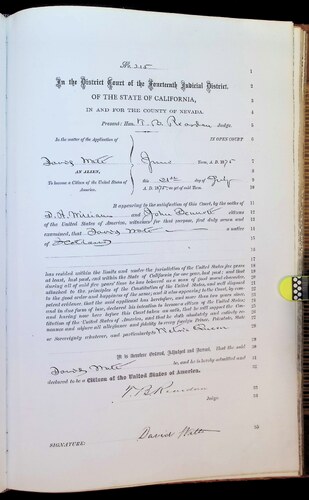 In the District Court of the Fourteenth Judicial District,
OF THE STATE OF CALIFORNIA,
IN AND FOR THE COUNTY OF NEVADA.
Present: Hon. T. B. Reardan Judge.
In the matter of the Application of
IN OPEN COURT
June Term, A. D. 1875
AN ALIEN,
To become a Citizen of the United States of
America.
the 21st day of July
A. D. 1875, to-wit of said Term.
It appearing to the satisfaction of this Court, by the oaths of
D. H. Williams and John Bennett citizens
of the United States of America, witnesses for that purpose, first duly sworn and
examined, that a native
of Scotland
has resided within the limits and under the jurisdiction of the United States five years
at least, last past, and within the State of California for one year, last past; and that
during all of said five years' time he has behaved as a man of good moral character,
attached to the principles of the Constitution of the United States, and well disposed
to the good order and happiness of the same; and it also appearing to the Court, by com-
petent evidence, that the said applicant has heretofore, and more than two years since,
and in due form of law, declared his intention to become a citizen of the United States;
and having now here before this Court taken an oath, that he will support the Con-
stitution of the United States of America, and that he doth absolutely and entirely re-
nounce and abjure all allegiance and fidelity to every foreign Prince, Potentate, State
or Sovereignty whatever, and particularly to
It is therefore Ordered, Adjudged and Decreed, That the said
be, and he is hereby admitted and
declared to be a Citizen of the United States of America.
T. B. Reardan
Judge.
SIGNATURE: David